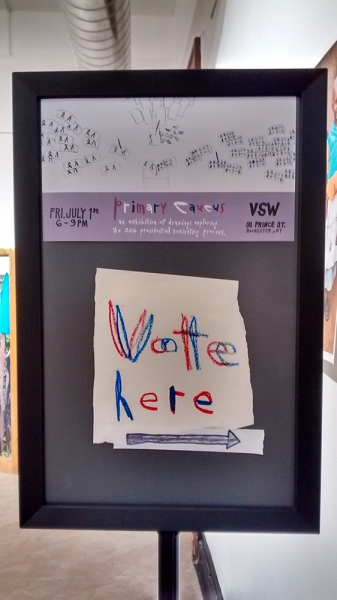 FRI. JULY 1st
6-9 PM
Primary Caucus
an exhibition of drawings exploring
the 2016 presidential nominating process
VSW
31 PRINCE ST.
ROCHESTER, NY
Vote
here